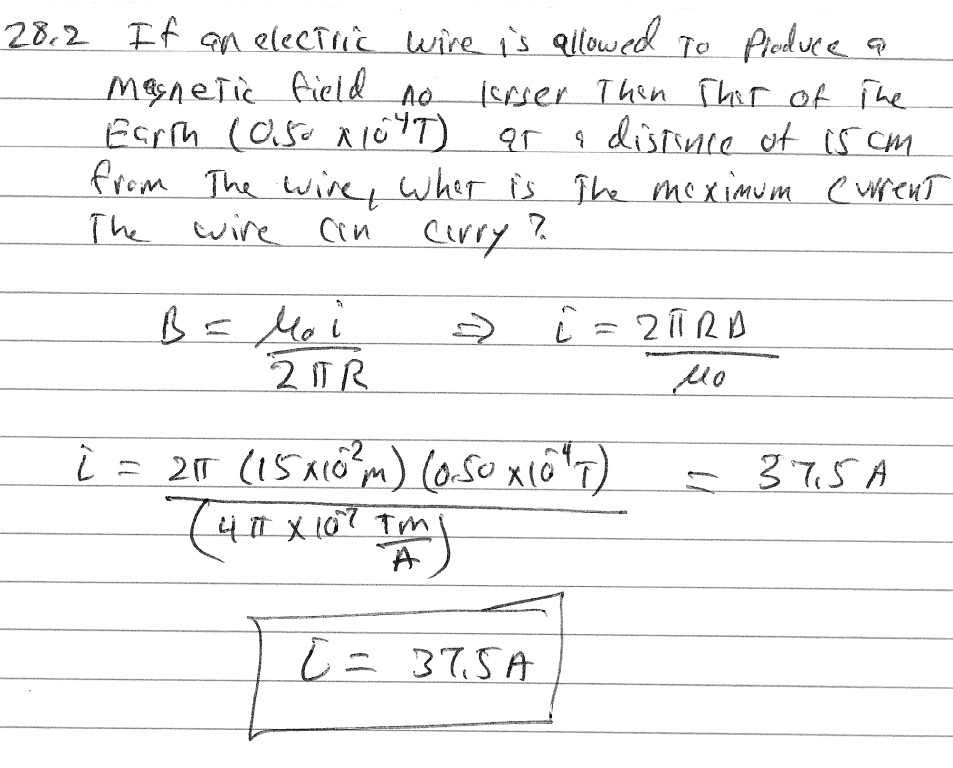 28.2 If an electric wire is allowed to produce a
magnetic field no larger than that of the
Earth (0.50 x 10⁻⁴T) at a distance of 15 cm
from the wire, what is the maximum current
the wire can carry?
B = μ₀ i / 2πR ⇒ i = 2πRB / μ₀
i = 2π (15 x 10⁻² m) (0.50 x 10⁻⁴ T) / (4π x 10⁻⁷ Tm/A) = 37.5 A
i = 37.5 A